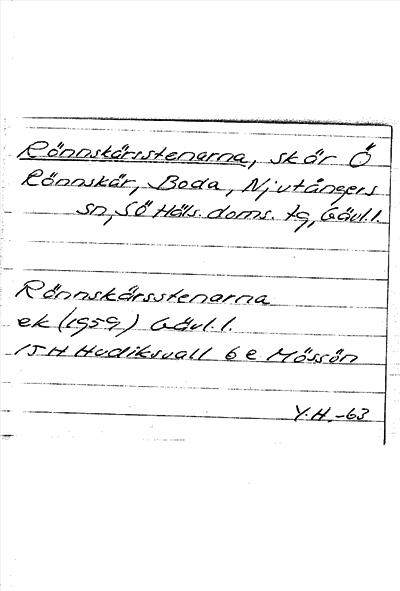 Rönnskärsstenarna, skär Ö
Rönnskär, Boda, Njutångers
sn, SÖ Häls. doms. tg, Gävl.l.
Rönnskärsstenarna
ek (1959) Gävl.l.
15H Hudiksvall 6e Mössön
Y.H.-63